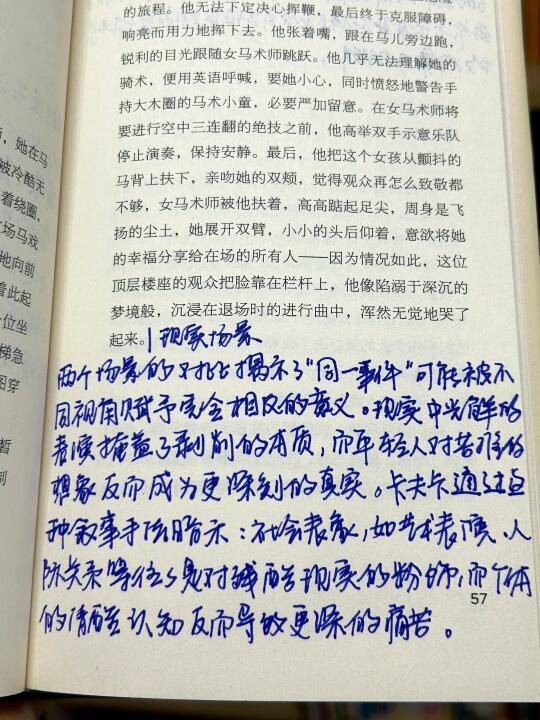 的旅程。他无法下定决心挥鞭，最后终于克服障碍，
响亮而用力地挥下去。他张着嘴，跟在马儿旁边跑，
锐利的目光跟随女马术师跳跃。他几乎无法理解她的
骑术，便用英语呼喊，要她小心，同时愤怒地警告手
持大木圈的马术小童，必要严加留意。在女马术师将
要进行空中三连翻的绝技之前，他高举双手示意乐队
停止演奏，保持安静。最后，他把这个女孩从颤抖的
马背上扶下，亲吻她的双颊，觉得观众再怎么致敬都
不够，女马术师被他扶着，高高踮起足尖，周身是飞
扬的尘土，她展开双臂，小小的头后仰着，意欲将她
的幸福分享给在场的所有人——因为情况如此，这位
顶层楼座的观众把脸靠在栏杆上，他像陷溺于深沉的
梦境般，沉浸在退场时的进行曲中，浑然无觉地哭了
起来。| 现实场景
两个场景的对比揭示了“同一事件”可能被不
同视角赋予完全相反的意义。现实中光鲜的
表演掩盖了剥削的本质，而年轻人对苦难的
想象反而成为更深刻的真实。卡夫卡通过这
种叙事手法暗示：社会表象，如艺术表演、人
际关系等往往是对残酷现实的粉饰，而个体
的清醒认知反而导致更深的痛苦。
57
，她在马
被冷酷无
着绕圈，
场马戏
地向前
着此起
一位坐
梯急
圈穿
暂
制